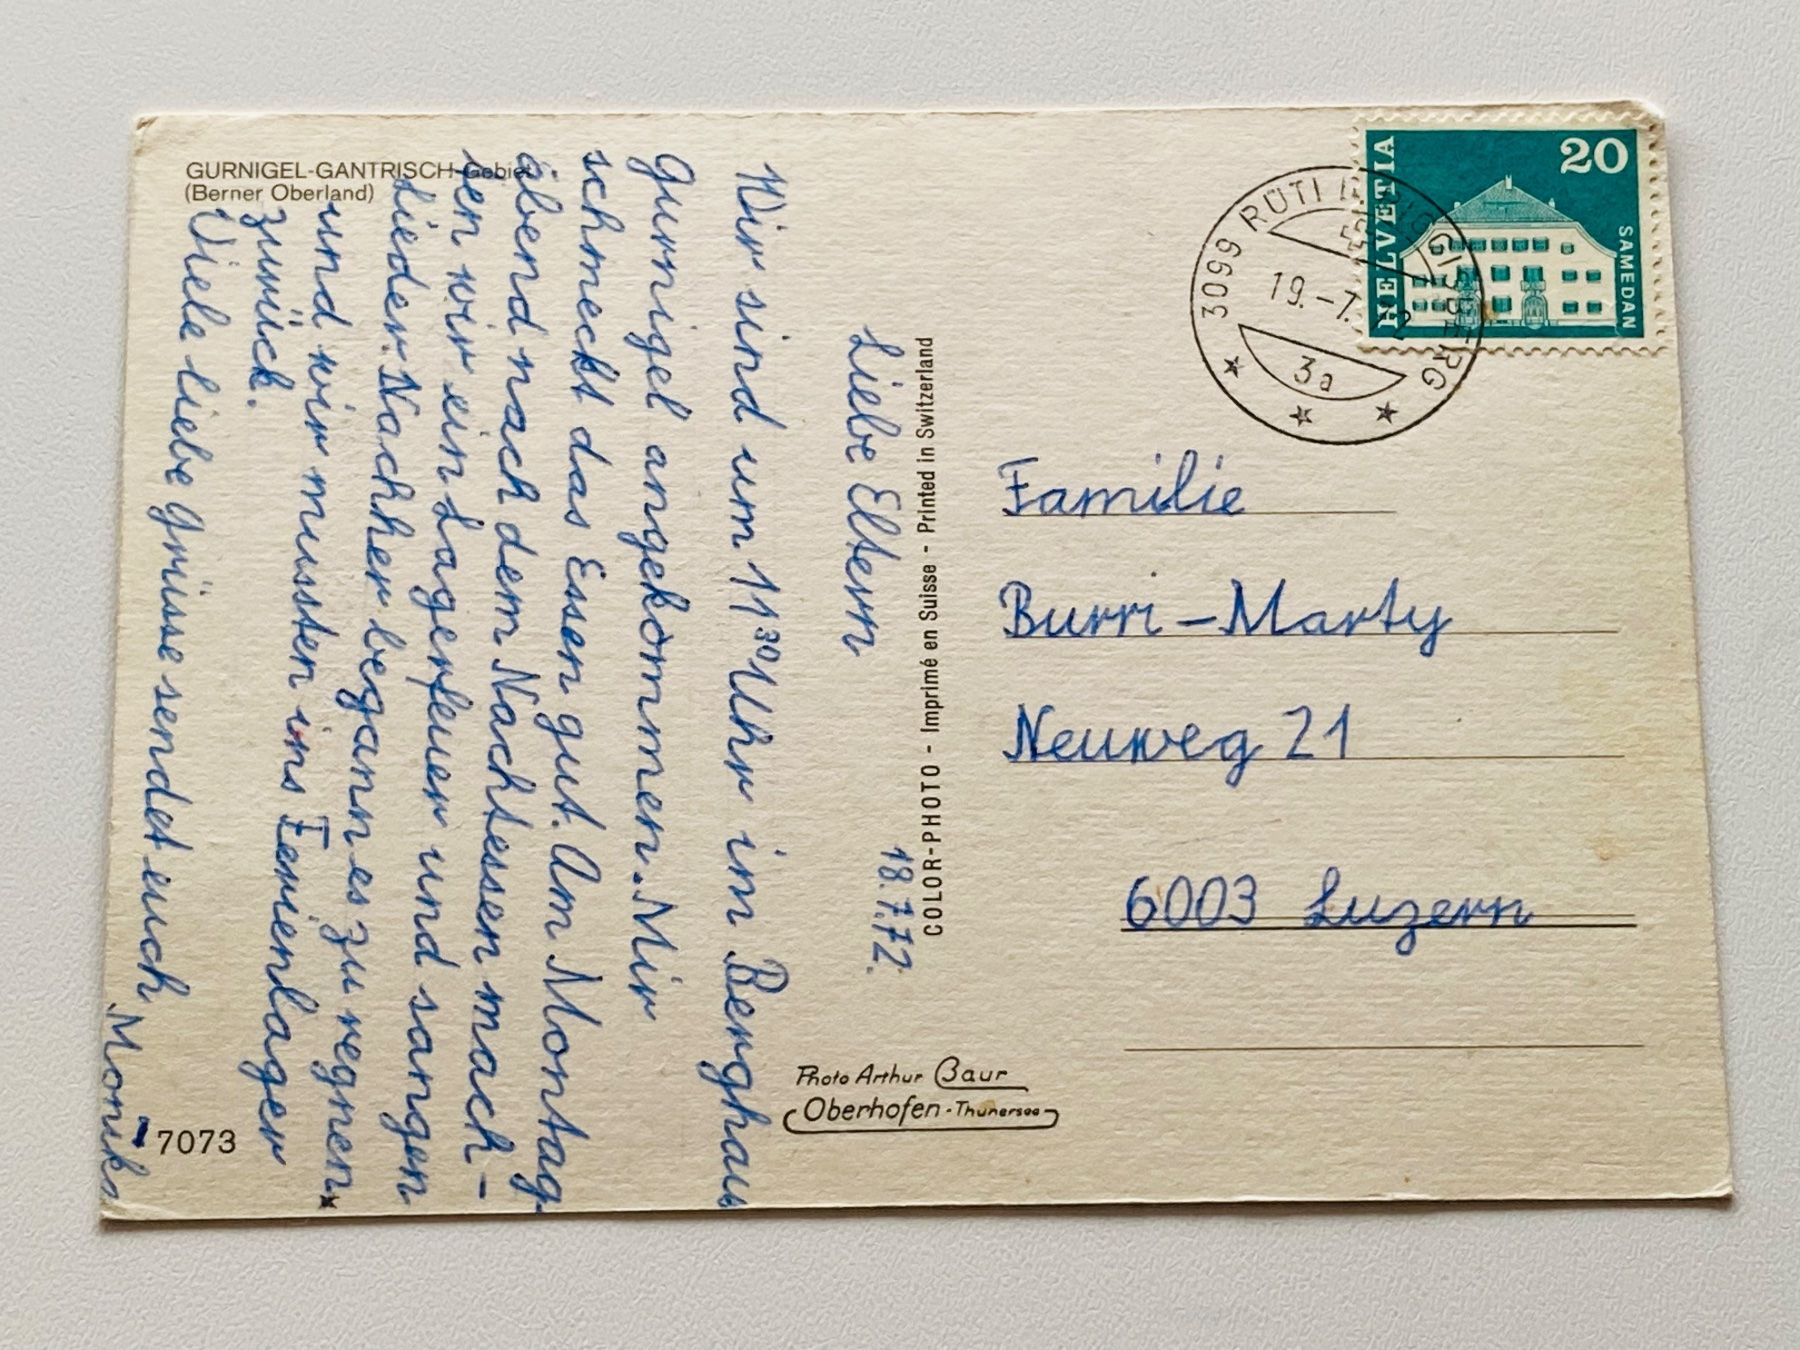 GURNIGEL-GANTRISCH-Gebiet
(Berner Oberland)
18.7.72.
Liebe Eltern
Wir sind um 11³⁰ Uhr im Berghaus
Gurnigel angekommen. Mir
schmeckt das Essen gut. Am Montag
abend nach dem Nachtessen mach-
ten wir ein Lagerfeuer und sangen
Lieder. Nachher begann es zu regnen
und wir mussten ins Ferienlager
zurück.
Viele liebe Grüsse sendet euch
Monika
7073
COLOR-PHOTO - Imprimé en Suisse - Printed in Switzerland
Photo Arthur Baur
Oberhofen - Thunersee
HELVETIA
20
SAMEDAN
3099 RÜTI
19.-7.
3a
Familie
Burri-Marty
Neuweg 21
6003 Luzern